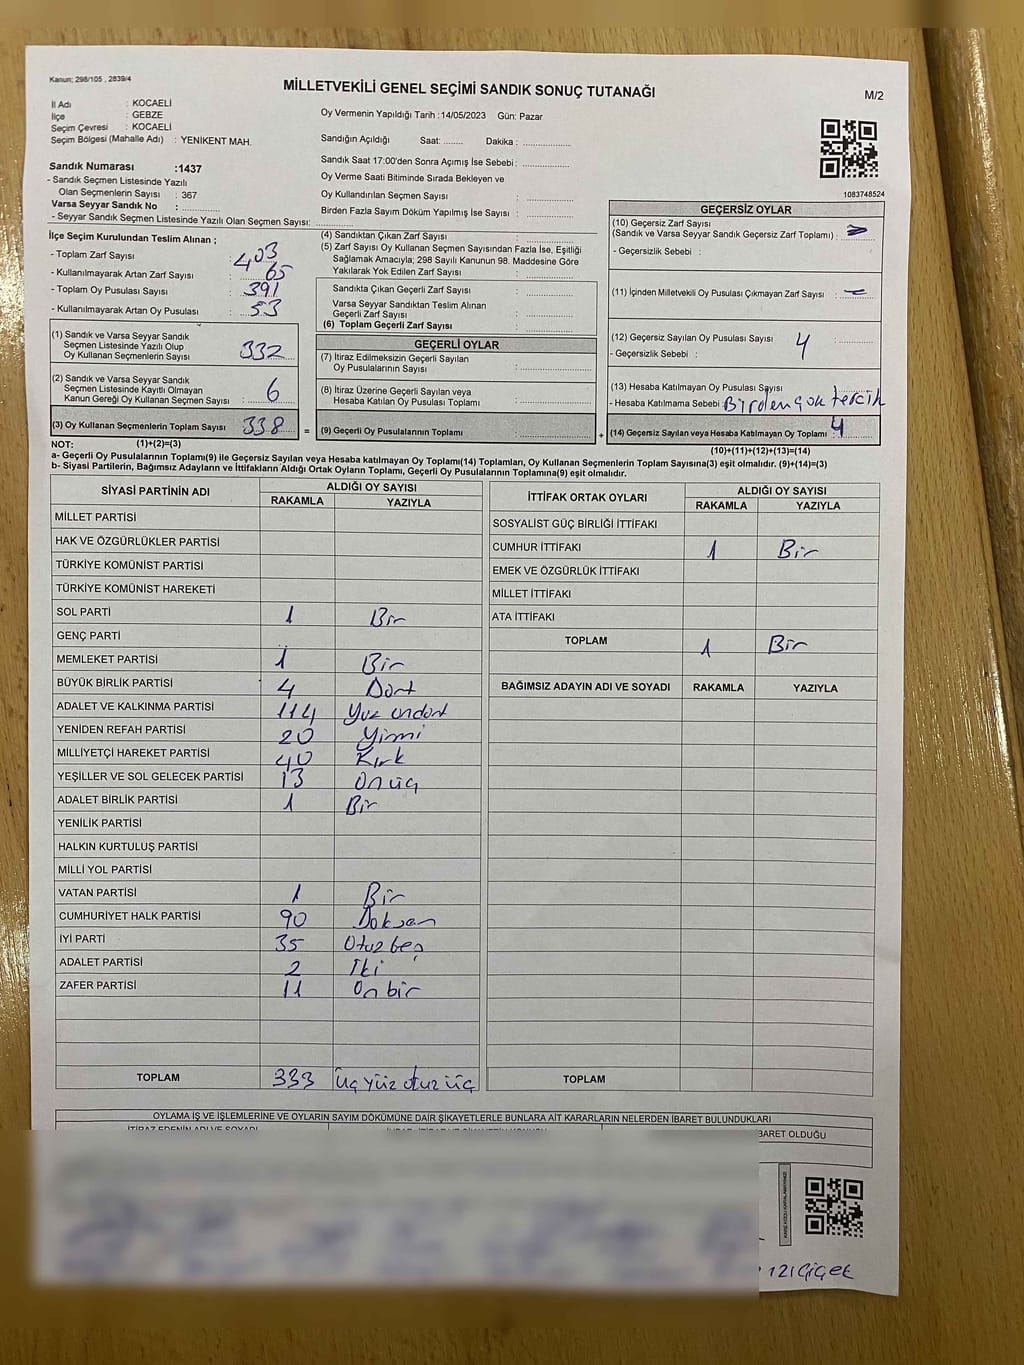 Kanun; 298/105 , 2839/4
MİLLETVEKİLİ GENEL SEÇİMİ SANDIK SONUÇ TUTANAĞI
M/2
İl Adı : KOCAELİ
İlçe : GEBZE
Seçim Çevresi : KOCAELİ
Seçim Bölgesi (Mahalle Adı) : YENİKENT MAH.
Sandık Numarası :1437
- Sandık Seçmen Listesinde Yazılı
Olan Seçmenlerin Sayısı : 367
Varsa Seyyar Sandık No :
- Seyyar Sandık Seçmen Listesinde Yazılı Olan Seçmen Sayısı:
Oy Vermenin Yapıldığı Tarih :14/05/2023 Gün: Pazar
Sandığın Açıldığı Saat: Dakika :
Sandık Saat 17:00'den Sonra Açımış İse Sebebi :
Oy Verme Saati Bitiminde Sırada Bekleyen ve
Oy Kullandırılan Seçmen Sayısı :
Birden Fazla Sayım Döküm Yapılmış İse Sayısı :
1083748524
İlçe Seçim Kurulundan Teslim Alınan ;
- Toplam Zarf Sayısı : 403
- Kullanılmayarak Artan Zarf Sayısı : 65
- Toplam Oy Pusulası Sayısı : 391
- Kullanılmayarak Artan Oy Pusulası : 53
(1) Sandık ve Varsa Seyyar Sandık
Seçmen Listesinde Yazılı Olup
Oy Kullanan Seçmenlerin Sayısı : 332
(2) Sandık ve Varsa Seyyar Sandık
Seçmen Listesinde Kayıtlı Olmayan
Kanun Gereği Oy Kullanan Seçmen Sayısı : 6
(3) Oy Kullanan Seçmenlerin Toplam Sayısı : 338
(4) Sandıktan Çıkan Zarf Sayısı :
(5) Zarf Sayısı Oy Kullanan Seçmen Sayısından Fazla İse, Eşitliği
Sağlamak Amacıyla; 298 Sayılı Kanunun 98. Maddesine Göre
Yakılarak Yok Edilen Zarf Sayısı :
Sandıkta Çıkan Geçerli Zarf Sayısı :
Varsa Seyyar Sandıktan Teslim Alınan
Geçerli Zarf Sayısı :
(6) Toplam Geçerli Zarf Sayısı :
GEÇERLİ OYLAR
(7) İtiraz Edilmeksizin Geçerli Sayılan
Oy Pusulalarının Sayısı :
(8) İtiraz Üzerine Geçerli Sayılan veya
Hesaba Katılan Oy Pusulası Toplamı :
= (9) Geçerli Oy Pusulalarının Toplamı :
GEÇERSİZ OYLAR
(10) Geçersiz Zarf Sayısı
(Sandık ve Varsa Seyyar Sandık Geçersiz Zarf Toplamı) :
- Geçersizlik Sebebi :
(11) İçinden Milletvekili Oy Pusulası Çıkmayan Zarf Sayısı : —
(12) Geçersiz Sayılan Oy Pusulası Sayısı : 4
- Geçersizlik Sebebi :
(13) Hesaba Katılmayan Oy Pusulası Sayısı :
- Hesaba Katılmama Sebebi : Birden çok tercih
+ (14) Geçersiz Sayılan veya Hesaba Katılmayan Oy Toplamı : 4
NOT: (1)+(2)=(3)
(10)+(11)+(12)+(13)=(14)
a- Geçerli Oy Pusulalarının Toplamı(9) ile Geçersiz Sayılan veya Hesaba katılmayan Oy Toplamı(14) Toplamları, Oy Kullanan Seçmenlerin Toplam Sayısına(3) eşit olmalıdır. (9)+(14)=(3)
b- Siyasi Partilerin, Bağımsız Adayların ve İttifakların Aldığı Ortak Oyların Toplamı, Geçerli Oy Pusulalarının Toplamına(9) eşit olmalıdır.
SİYASİ PARTİNİN ADI
ALDIĞI OY SAYISI
RAKAMLA YAZIYLA
MİLLET PARTİSİ
HAK VE ÖZGÜRLÜKLER PARTİSİ
TÜRKİYE KOMÜNİST PARTİSİ
TÜRKİYE KOMÜNİST HAREKETİ
SOL PARTİ 1 Bir
GENÇ PARTİ
MEMLEKET PARTİSİ 1 Bir
BÜYÜK BİRLİK PARTİSİ 4 Dört
ADALET VE KALKINMA PARTİSİ 114 Yüz ondört
YENİDEN REFAH PARTİSİ 20 Yirmi
MİLLİYETÇİ HAREKET PARTİSİ 40 Kırk
YEŞİLLER VE SOL GELECEK PARTİSİ 13 Onüç
ADALET BİRLİK PARTİSİ 1 Bir
YENİLİK PARTİSİ
HALKIN KURTULUŞ PARTİSİ
MİLLİ YOL PARTİSİ
VATAN PARTİSİ 1 Bir
CUMHURİYET HALK PARTİSİ 90 Doksan
İYİ PARTİ 35 Otuzbeş
ADALET PARTİSİ 2 İki
ZAFER PARTİSİ 11 Onbir
TOPLAM 333 Üç yüz otuz üç
İTTİFAK ORTAK OYLARI
ALDIĞI OY SAYISI
RAKAMLA YAZIYLA
SOSYALİST GÜÇ BİRLİĞİ İTTİFAKI
CUMHUR İTTİFAKI 1 Bir
EMEK VE ÖZGÜRLÜK İTTİFAKI
MİLLET İTTİFAKI
ATA İTTİFAKI
TOPLAM 1 Bir
BAĞIMSIZ ADAYIN ADI VE SOYADI RAKAMLA YAZIYLA
TOPLAM
OYLAMA İŞ VE İŞLEMLERİNE VE OYLARIN SAYIM DÖKÜMÜNE DAİR ŞİKAYETLERLE BUNLARA AİT KARARLARIN NELERDEN İBARET BULUNDUKLARI
İTİRAZ EDENİN ADI VE SOYADI
BARET OLDUĞU